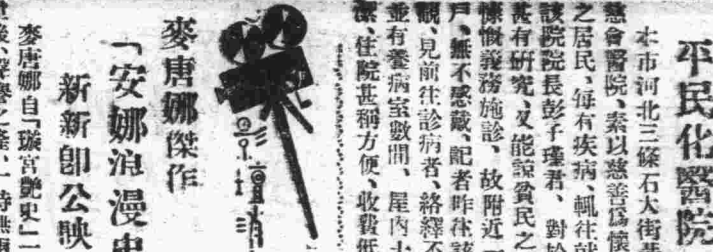 平民化醫院
本市河北三條石大街
慈會醫院、素以慈善爲懷
之居民、每有疾病、輒往就
該院院長彭子瑾君、對於
甚有研究、又能諒貧民之
慷慨義務施診、故附近一
戶、無不感戴、記者昨往該
觀、見前往診病者、絡繹不
並有養病室數間、屋內
潔、住院甚稱方便、收費低
麥唐娜傑作
「安娜浪漫史
新新卽公映
麥唐娜自「璇宮艷史」一
後、聲譽之隆、一時無